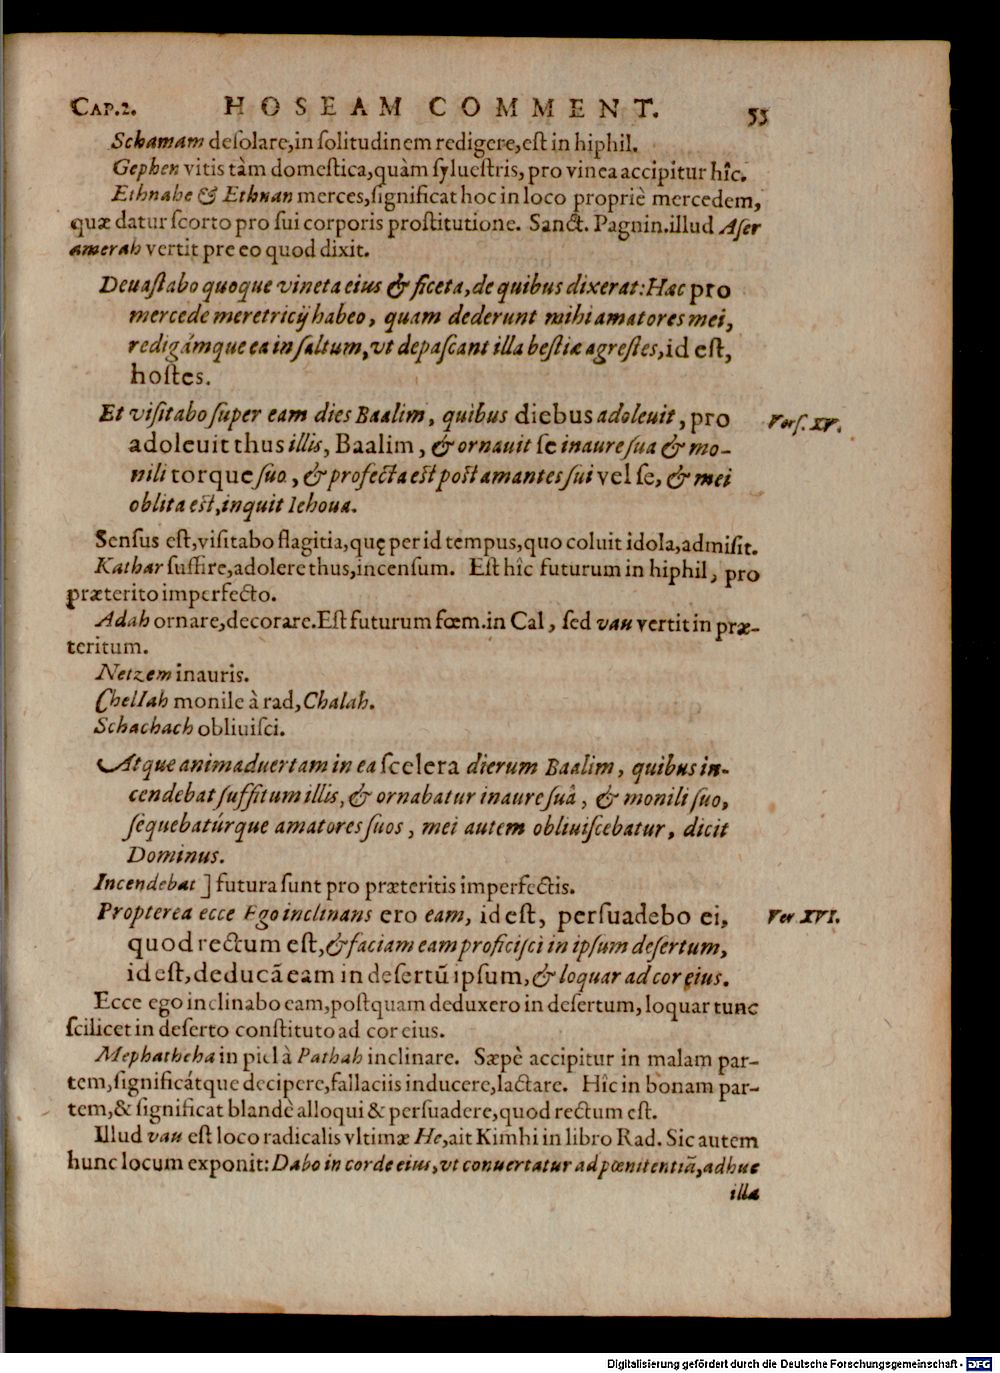 CAP.2. HOSEAM COMMENT. 53
Schamam desolare,in solitudinem redigere,est in hiphil.
Gephen vitis tàm domestica,quàm syluestris, pro vinea accipitur hîc.
Ethnahe & Ethnan merces,significat hoc in loco propriè mercedem,
quæ datur scorto pro sui corporis prostitutione. Sanct. Pagnin.illud Aser
amerah vertit pre eo quod dixit.
Deuastabo quoque vineta eius & ficeta,de quibus dixerat:Hæc pro
mercede meretricij habeo, quam dederunt mihi amatores mei,
redigámque ea in saltum,vt depascant illa bestiæ agrestes,id est,
hostes.
Et visitabo super eam dies Baalim, quibus diebus adoleuit, pro
Vers. XV.
adoleuit thus illis, Baalim, & ornauit se inaure sua & mo-
nili torque suo, & profecta est post amantes sui vel se, & mei
oblita est,inquit Iehoua.
Sensus est,visitabo flagitia,quę per id tempus,quo coluit idola,admisit.
Kathar suffire,adolere thus,incensum. Est hîc futurum in hiphil, pro
præterito imperfecto.
Adah ornare,decorare.Est futurum fœm.in Cal, sed vau vertit in præ-
teritum.
Netzem inauris.
Chellah monile à rad,Chalah.
Schachach obliuisci.
Atque animaduertam in ea scelera dierum Baalim, quibus in-
cendebat suffitum illis, & ornabatur inaure suâ, & monili suo,
sequebatúrque amatores suos, mei autem obliuiscebatur, dicit
Dominus.
Incendebat ] futura sunt pro præteritis imperfectis.
Propterea ecce Ego inclinans ero eam, id est, persuadebo ei,
Ver XVI.
quod rectum est,& faciam eam proficisci in ipsum desertum,
id est,deducā eam in desertū ipsum,& loquar ad cor ęius.
Ecce ego inclinabo eam,postquam deduxero in desertum, loquar tunc
scilicet in deserto constituto ad cor eius.
Mephatheha in piel à Pathah inclinare. Sæpè accipitur in malam par-
tem,significátque decipere,fallaciis inducere,lactare. Hîc in bonam par-
tem,& significat blandè alloqui & persuadere,quod rectum est.
Illud vau est loco radicalis vltimæ He,ait Kimhi in libro Rad. Sic autem
hunc locum exponit: Dabo in corde eius,vt conuertatur ad pœnitentiā,adhuc
illa
Digitalisierung gefördert durch die Deutsche Forschungsgemeinschaft - DFG